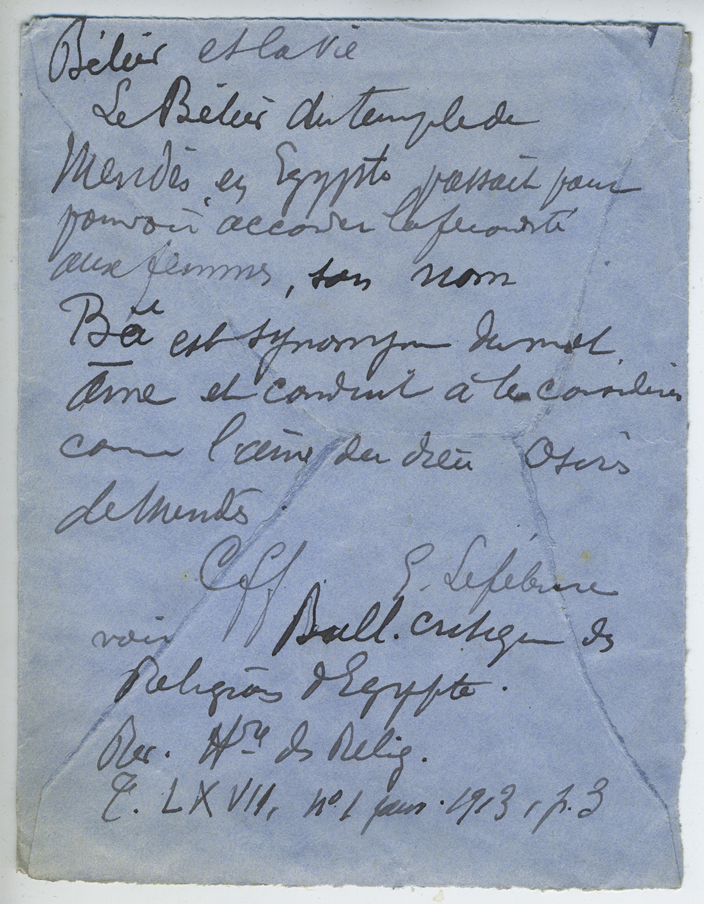 Bélier et la vie
Le Bélier du temple de
Mendès, en Egypte passait pour
pouvoir accorder la fécondité
aux femmes, son nom
Ba est synonyme du mot
âme et conduit à le considérer
comme l'âme du dieu Osiris
de Mendès.
Cff E. Lefébure
voir Bull. critique des
Religions d'Egypte.
Rev. Hre des Relig.
T. LXVII, no 1 janv. 1913, p. 3